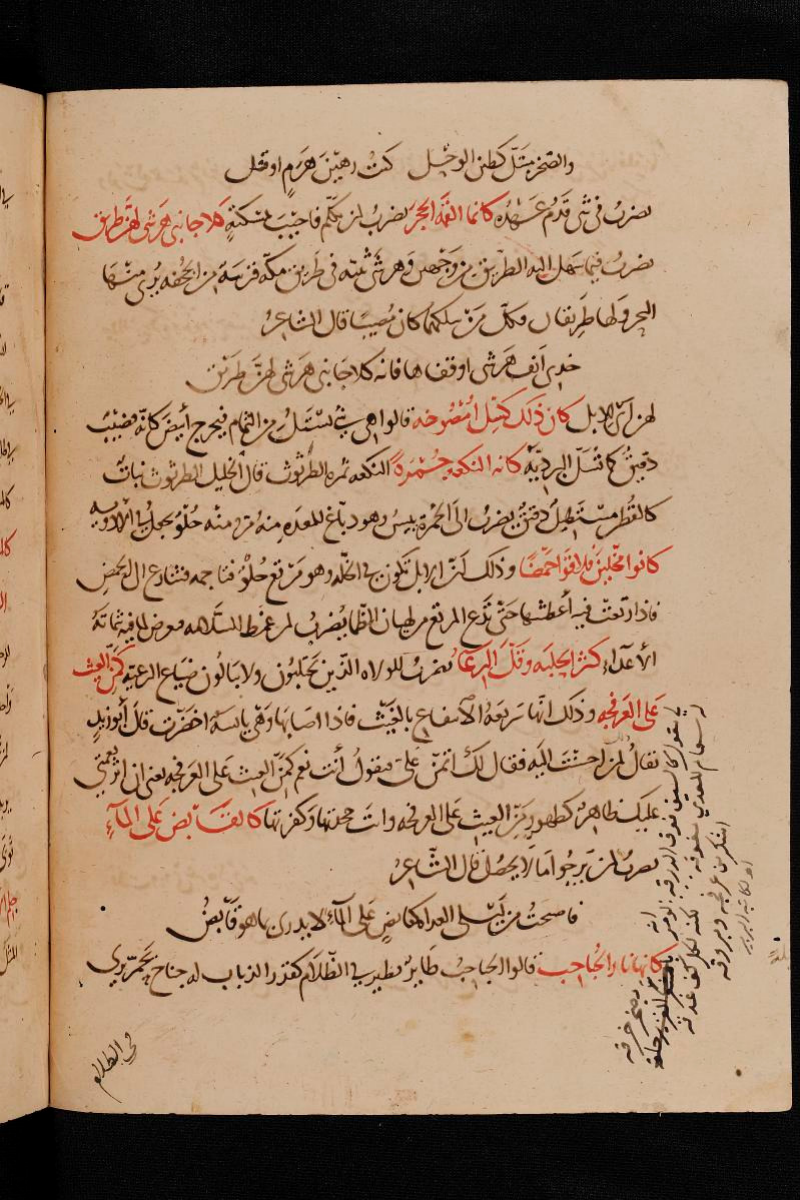 والصخر مبتل كطين الوحل كنت رهين هرم او قتل
يضرب في شي قدم عهده كانما القمه الحجر يضرب لمن تكلم فاجيب بمسكتة كلا جانبي هرشى لهن طريق
يضرب فيما سهل اليه الطريق من وجهين وهرشى ثنيه في طريق مكه قريبة من الجحفه يرى منها
البحر ولها طريقان وكل من سلكهما كان مصيبا قال الشاعر
خذي انف هرشى او قفاها فانه كلا جانبي هرشى لهن طريق
لهن اي للابل كان ذلك كسل امصوخه قالوا هي شي يستل من الثمام فيخرج أبيض كانه قضيب
دقيق كما تسل البردية كانه النكعه حمرة النكعه ثمره الطرثوث قال الخليل الطرثوث نبات
كالقطر مستطيل دقيق يضرب الى الحمرة ييبس وهو دباغ للمعده منه مر ومنه حلو يجعل في الادويه
كانوا مخلين فلاقوا حمضا وذلك لان الابل تكون في الخلة وهو مرتع حلو فتاجمه فتنازع الى الحمض
فاذا رتعت فيه أعطشها حتى تدع المرتع من لهبان الظما يضرب لمن غمط السلامه فتعرض لما فيه شماتة
الأعداء كثر الحلبه وقل الرعا يضرب للولاه الذين يحتلبون ولا يبالون ضياع الرعيه كمن الغيث
على العرفجه وذلك انها سريعة الانتفاع بالغيث فاذا اصابها وهي يابسة اخضرت قال أبو زيد
يقال لمن احسنت اليه فقال لك اتمن علي فيقول أنت نعم كمن الغيث على العرفجه يعني ان اثر نعمتي
عليك ظاهر كظهور من الغيث على العرفجه وانت جحدتها وكفرتها كالقابض على الماء
يضرب لمن يرجو ما لا يحصل قال الشاعر
فاصبحت من ليلى الغداه كقابض على الماء لا يدري بما هو قابض
كانها نار الحباحب قالوا الحباحب طاير يطير في الظلام كقدر الذباب له جناح يحمر يرى
في الظلام